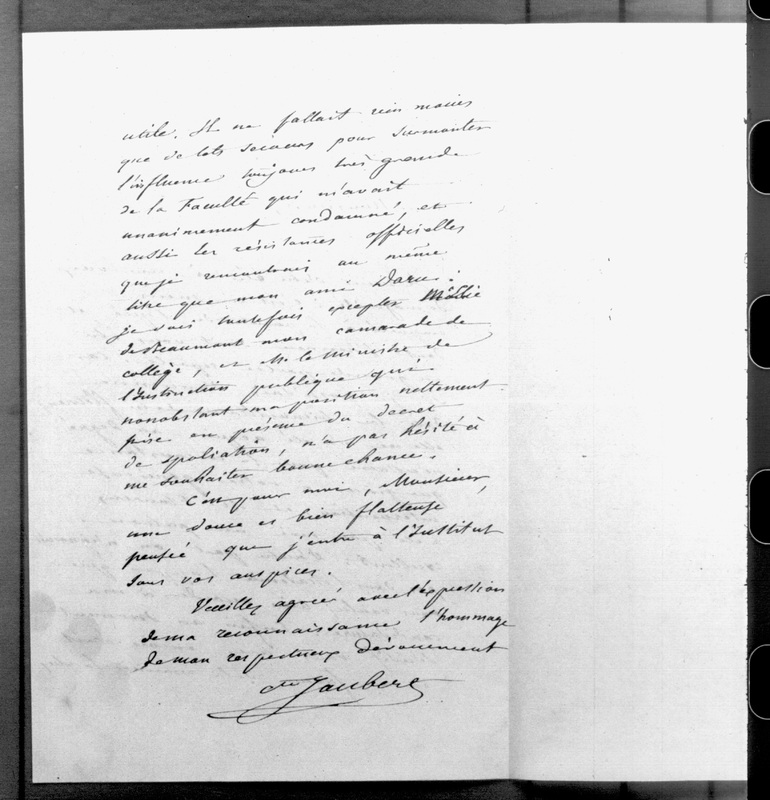 utile. Il ne fallait rien moins
que de tels secours pour surmonter
l'influence toujours très grande
de la Faculté qui m'avait
unanimement condamné, et
aussi les résistances officielles
que je rencontrais au même
titre que mon ami Daru :
je dois toutefois excepter Mr Elie
de Beaumont mon camarade de
collège, et Mr le Ministre de
l'Instruction publique qui
nonobstant ma position nettement
prise en présence du décret
de spoliation, n'a pas hésité à
me souhaiter bonne chance.
C'est pour moi, Monsieur,
une douce et bien flatteuse
pensée que j'entre à l'Institut
sous vos auspices.
Veuillez agréer avec l'expression
de ma reconnaissance l'hommage
de mon respectueux dévouement
Cte Jaubert